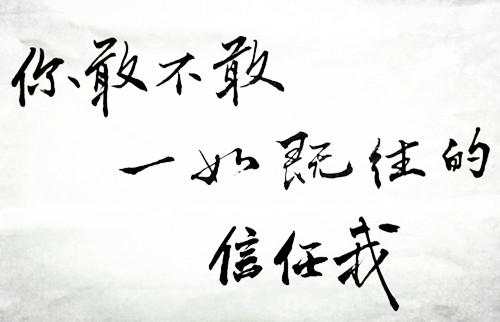 你敢不敢
一如既往的
信任我